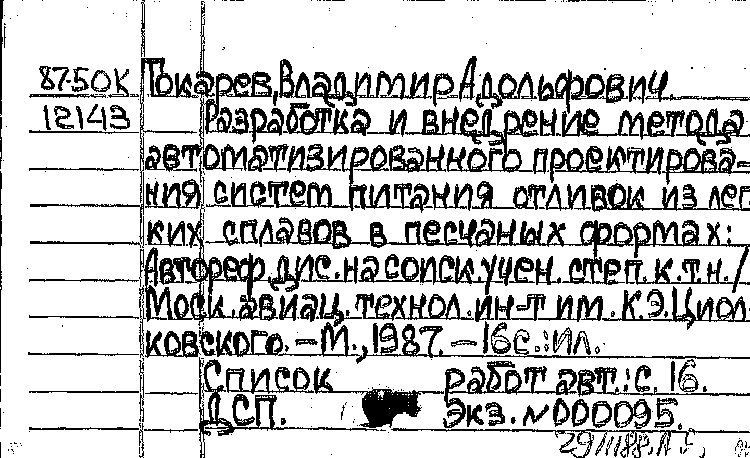 87-50К Токарев, Владимир Адольфович.
12143 Разработка и внедрение метода
автоматизированного проектирова-
ния систем питания отливок из лег
ких сплавов в песчаных формах:
Автореф. дис. на соиск. учен. степ. к.т.н. /
Моск. авиац. технол. ин-т им. К.Э. Циол-
ковского. - М., 1987. - 16 с.: ил.
Список работ авт.: с. 16.
ДСП. Экз. N 000095.